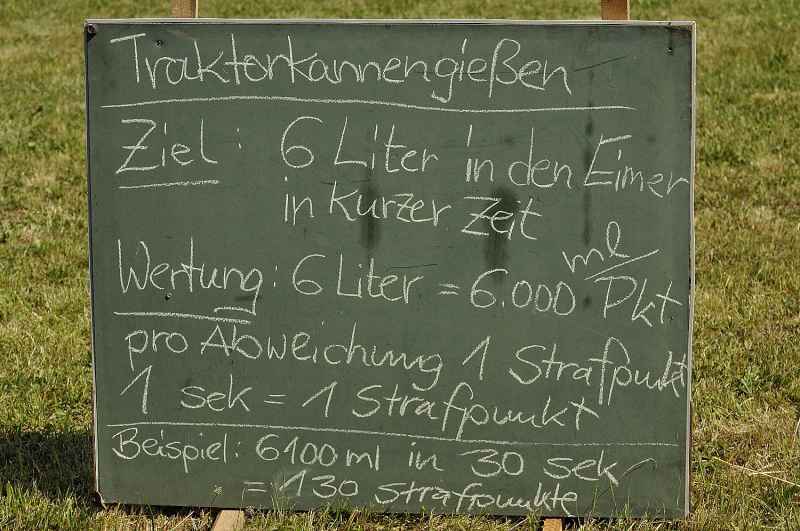 Traktorkannengießen
Ziel: 6 Liter in den Eimer
in kurzer Zeit
Wertung: 6 Liter = 6.000 ml/Pkt
pro Abweichung 1 Strafpunkt
1 sek = 1 Strafpunkt
Beispiel: 6100 ml in 30 sek
= 130 Strafpunkte